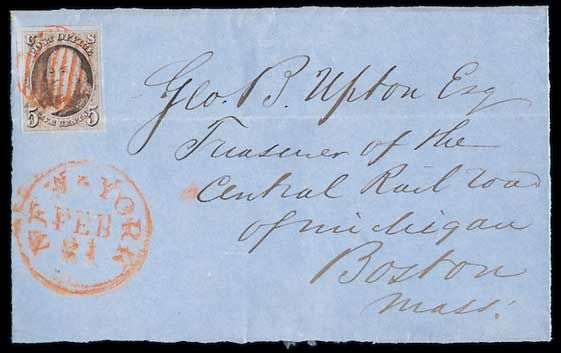 U S
POST OFFICE
5 5
FIVE CENTS
NEW-YORK
FEB
21
Geo. B. Upton Esq
Treasurer of the
Central Rail road
of michigan
Boston
mass.